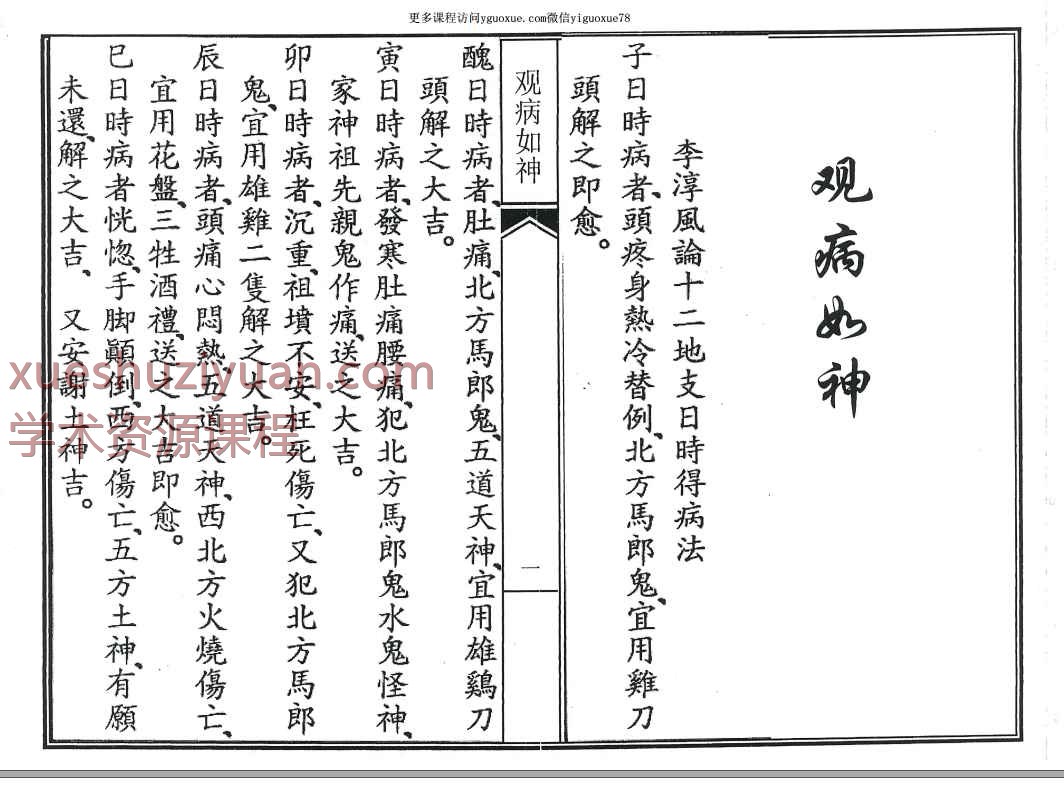 更多课程访问yguoxue.com微信yiguoxue78
观病如神
李淳風論十二地支日時得病法
子日時病者、頭疼身熱冷替例、北方馬郎鬼、宜用雞刀
頭解之即愈。
观病如神
一
醜日時病者、肚痛、北方馬郎鬼、五道天神、宜用雄鷄刀
頭解之大吉。
寅日時病者、發寒肚痛腰痛、犯北方馬郎鬼水鬼怪神、
家神祖先親鬼作痛、送之大吉。
卯日時病者、沉重、祖墳不安、枉死傷亡、又犯北方馬郎
鬼、宜用雄雞二隻解之大吉。
辰日時病者、頭痛心悶熱、五道天神、西北方火燒傷亡、
宜用花盤、三牲酒禮、送之大吉即愈。
巳日時病者恍惚、手脚顚倒、西方傷亡、五方土神、有願
未還、解之大吉、 又安謝土神吉。
xueshuziyuan.com
学术资源课程